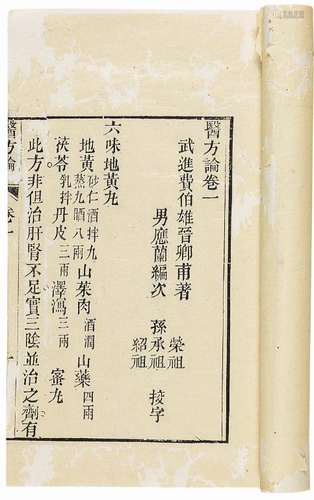 醫方論卷一
武進費伯雄晉卿甫著
男應蘭編次 孫 榮祖 承祖 紹祖 挍字
六味地黃丸
地黃 砂仁酒拌九蒸九晒八兩 山茱肉 酒潤 山藥 四兩
茯苓 乳拌 丹皮 三兩 澤瀉 三兩 蜜丸
此方非但治肝腎不足實三陰並治之劑有
醫方論 卷一 一